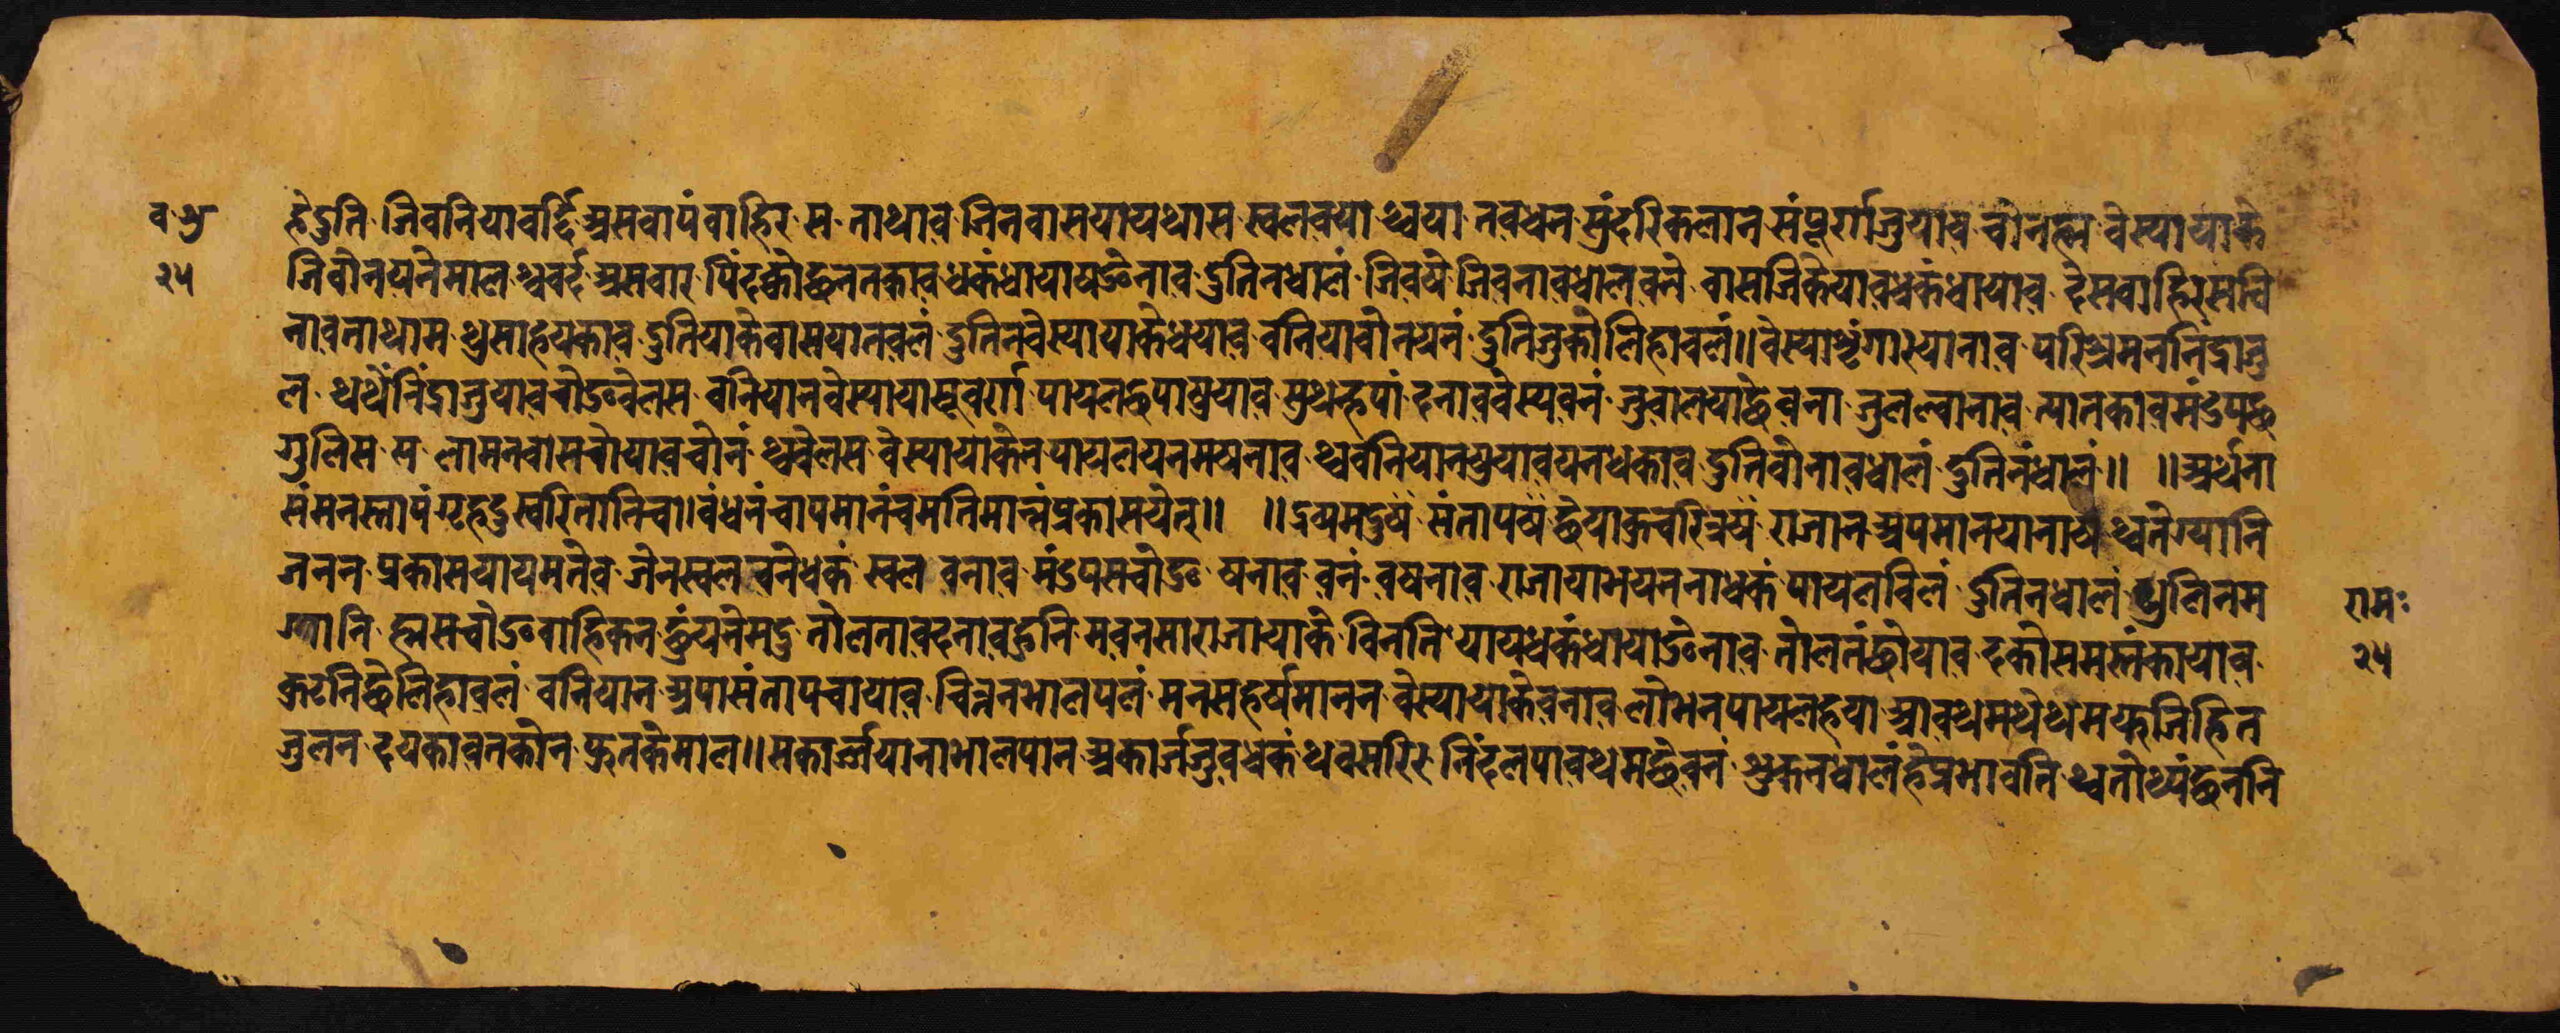 व शु हे दुति जिवनियावर्द्दि असवापं वाहिर स नाथाव जिनवासयाय थास स्वलवया थ्वया नवधन सुंदरि कलान संपूर्ण्ण जुयाव चोनह्म वेस्यायाके
२५ जिवोनयने माल थ्ववर्द असवार पिंदको छनतकाव धकं धायाव ङेनाव दुतिन धालं जिवये जिवनाव धोलवने वासजिके याव धकं धायाव देसवाहिरसचो
नाव नाथाम थुसाहयकाव दुतियाके वासयातवलं दुतिन वेस्यायाके धयाव वनियावोनयनं दुतिजुको लिहावलं॥ वेस्या शृंगार यानाव परिश्रमनं निंद्राजु
ल थथें निंद्रा जुयाव चोङवेलस वनियान वेस्याया सूवर्ण्ण पायल छपा षुयाव सुथ न्हपां दनाव वेस्यवनं जुवालयाछे वना जुलल्वानाव त्यातकाव मंडपछ
गुलिस स लामनवोसचोयाव चोनं थ्ववेलस वेस्यायाकेन पायलयनमषनाव थ्ववनियान षुयावयन धकाव दुतिवोनाव धालं दुतिनं धालं॥ ॥ अर्थना
संमनस्तापं गृहदुस्चरितानि च॥ वंधनं चापमानं च मतिमान्नं प्रकासयेत्॥ ॥ द्रव्यमदुषँ संतापषँ छेयाकुचरित्रषँ राजान अपमानयानाषँ थ्वते ग्यानि
जनन प्रकासयायमतेव जेनस्वल वने धकं स्वल वनाव मंडपसचोङ षनाव वनं वषनाव राजायाभयन नाधकं पायलविलं दुतिनधालं थुलिनम
ग्यानि ह्मसचोङवाहिकन छुंयनेमदु तोलताव दनाव दुनि मवनसा राजायाके विनति यायधकं धायाङेनाव तोलतं छोयाव दकोसमस्तं कायाव
कुटनिछे लिहावलं वनियान अपासंतापचायाव चित्तनभालपलं मनसहर्षमानन वेस्यायाके वनाव लोभन पायलहया आव थमथेथम फजिहित
जुलन दयकावतकोन फुतके माल॥ सकार्ज्जयाना भालपान अकार्जजुव धकं थवसरिर निंदलपाव थमछेवनं शुकनधालं हे प्रभावति थ्वतोथ्यं छनननि
रामः
२५